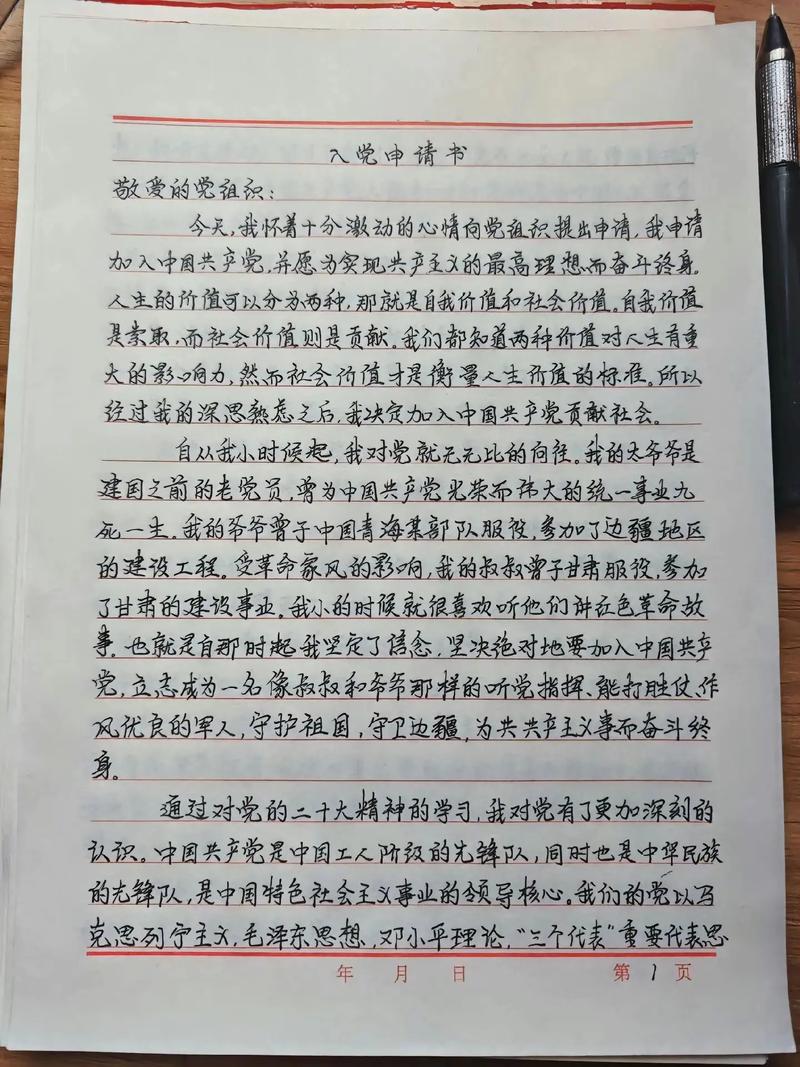 入党申请书
敬爱的党组织：
今天，我怀着十分激动的心情向党组织提出申请，我申请
加入中国共产党，并愿为实现共产主义的最高理想而奋斗终身。
人生的价值可以分为两种，那就是自我价值和社会价值。自我价值
是索取，而社会价值则是贡献。我们都知道两种价值对人生有重
大的影响力，然而社会价值才是衡量人生价值的标准。所以
经过我的深思熟虑之后，我决定加入中国共产党贡献社会。
自从我小时候起，我对党就无无比的向往。我的太爷爷是
建国之前的老党员，曾为中国共产党光荣而伟大的统一事业九
死一生。我的爷爷曾于中国青海某部队服役，参加了边疆地区
的建设工程。受革命家风的影响，我的叔叔曾于甘肃服役，参加
了甘肃的建设事业。我小的时候就很喜欢听他们讲红色革命故
事。也就是自那时起我坚定了信念，坚决绝对地要加入中国共产
党，立志成为一名像叔叔和爷爷那样的听党指挥、能打胜仗、作
风优良的军人，守护祖国，守卫边疆，为共共产主义事而奋斗终
身。
通过对党的二十大精神的学习，我对党有了更加深刻的
认识。中国共产党是中国工人阶级的先锋队，同时也是中华民族
的先锋队，是中国特色社会主义事业的领导核心。我们的党以马
克思列宁主义，毛泽东思想，邓小平理论，“三个代表”重要代表思
年 月 日 第 1 页